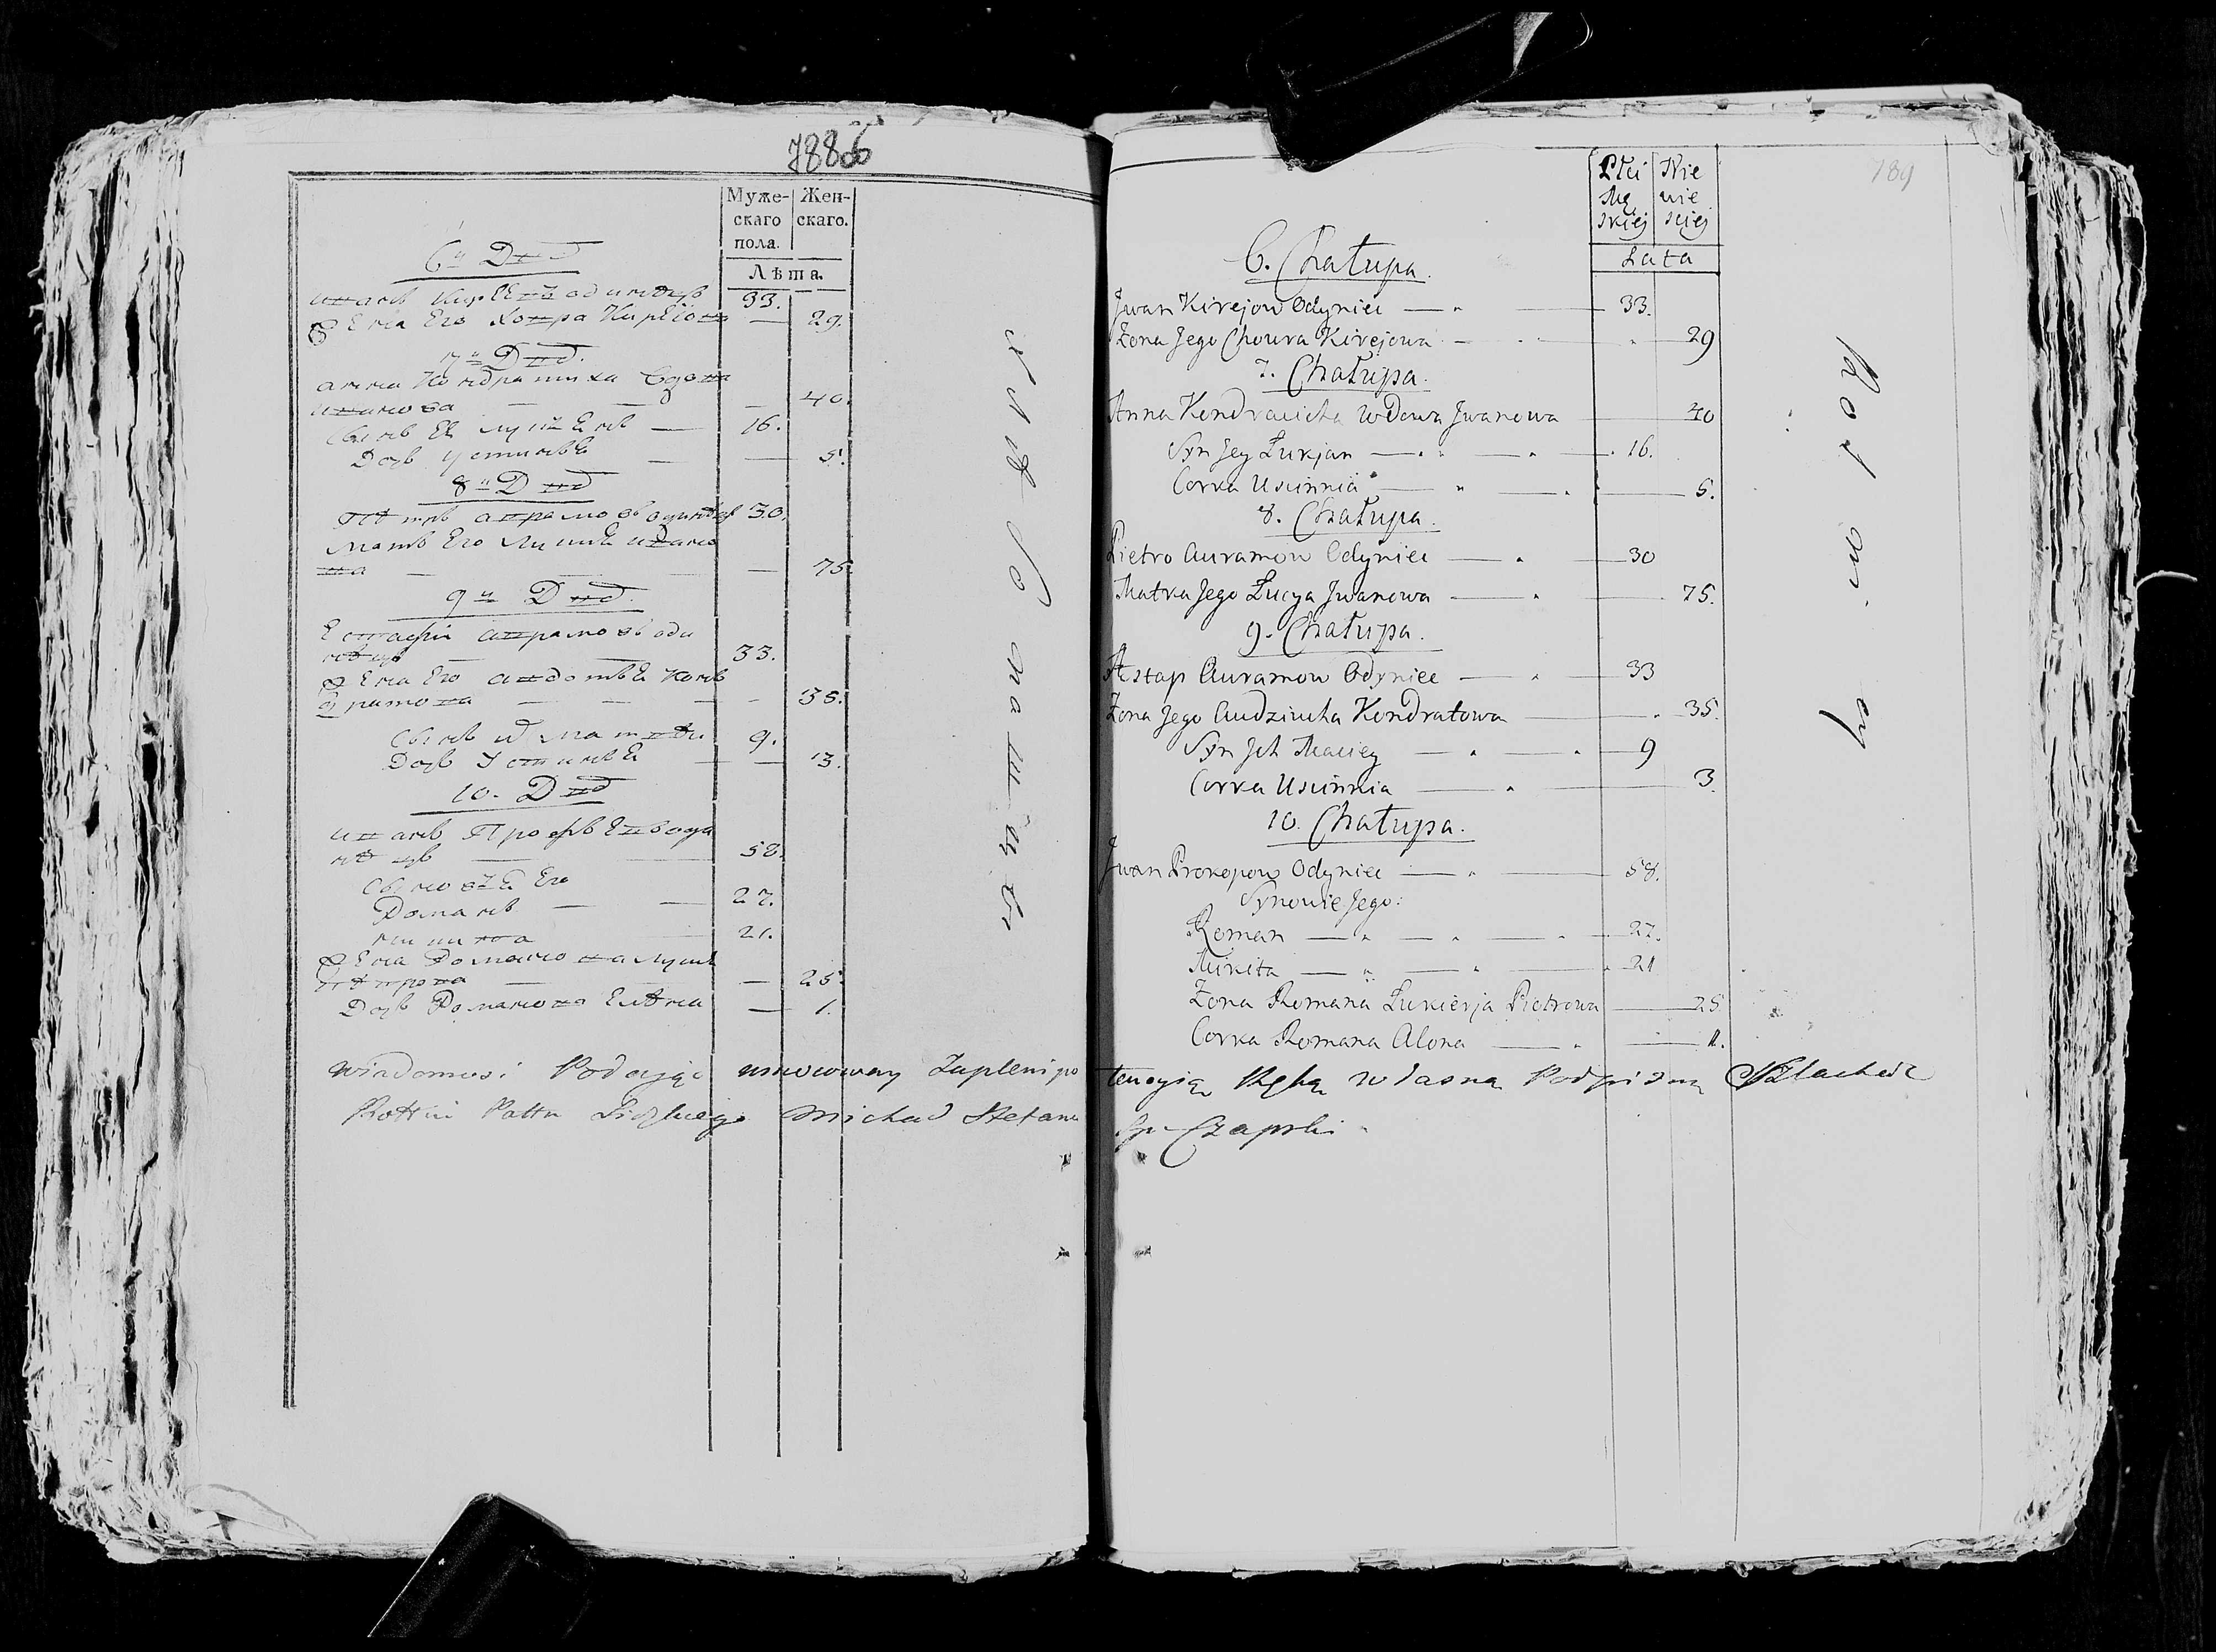 788об
Муже- Жен-
скаго скаго.
пола.
Лѣта.
6й Двд
иванъ Киреевъ одинецъ 33.
жена Его Ховра Кирѣева — 29.
7й Двд.
анна Кондратиха вдова
иванова — 40.
Сынъ Ея Лукьянъ — 16.
Дочь Устинья — 5.
8й Двд
Пётръ аврамовъ одинецъ 30.
мать Его Луция ивано
ва — 75.
9й Двд.
Естафи аврамовъ оди
нецъ 33.
жена Его авдотья Кон
дратова — 35.
Сынъ их матвей 9.
Дочь Устинья — 3.
10. Двд
иванъ Прокофьевъ оди
нецъ 58.
Сыновья Его
Романъ — 27.
никита 21.
жена Романова Лукерья
Петрова — 25.
Дочь Романова Елена — 1.
789
Płci Nie
Mę wie
skiej sciej
Lata
6. Chałupa.
Jwan Kirejow Odyniec — 33.
Zona Jego Chowra Kirejowa — 29
7. Chałupa.
Anna Kondracicha Wdowa Jwanowa — 40
Syn Jey Łukjan — 16.
Corka Uscinnia — 5.
8. Chałupa.
Pietro Auramow Odyniec — 30
Matka Jego Łucya Jwanowa — 75.
9. Chałupa.
Astap Auramow Odyniec — 33
Zona Jego Audziucha Kondratowa — 35.
Syn Jch Maciey — 9
Corka Uscinnia — 3.
10. Chałupa.
Jwan Prokopow Odyniec — 58.
Synowie Jego:
Roman — 27.
Mikita — 21
Zona Romana Łukierja Piotrowa — 25.
Corka Romana Alona — 1.
Wiadomosi Podając umocowany Zapleni po tencyią Ręką własną Podpisuę Szlachcic
Pottu Michał Stefana Syn Czapski